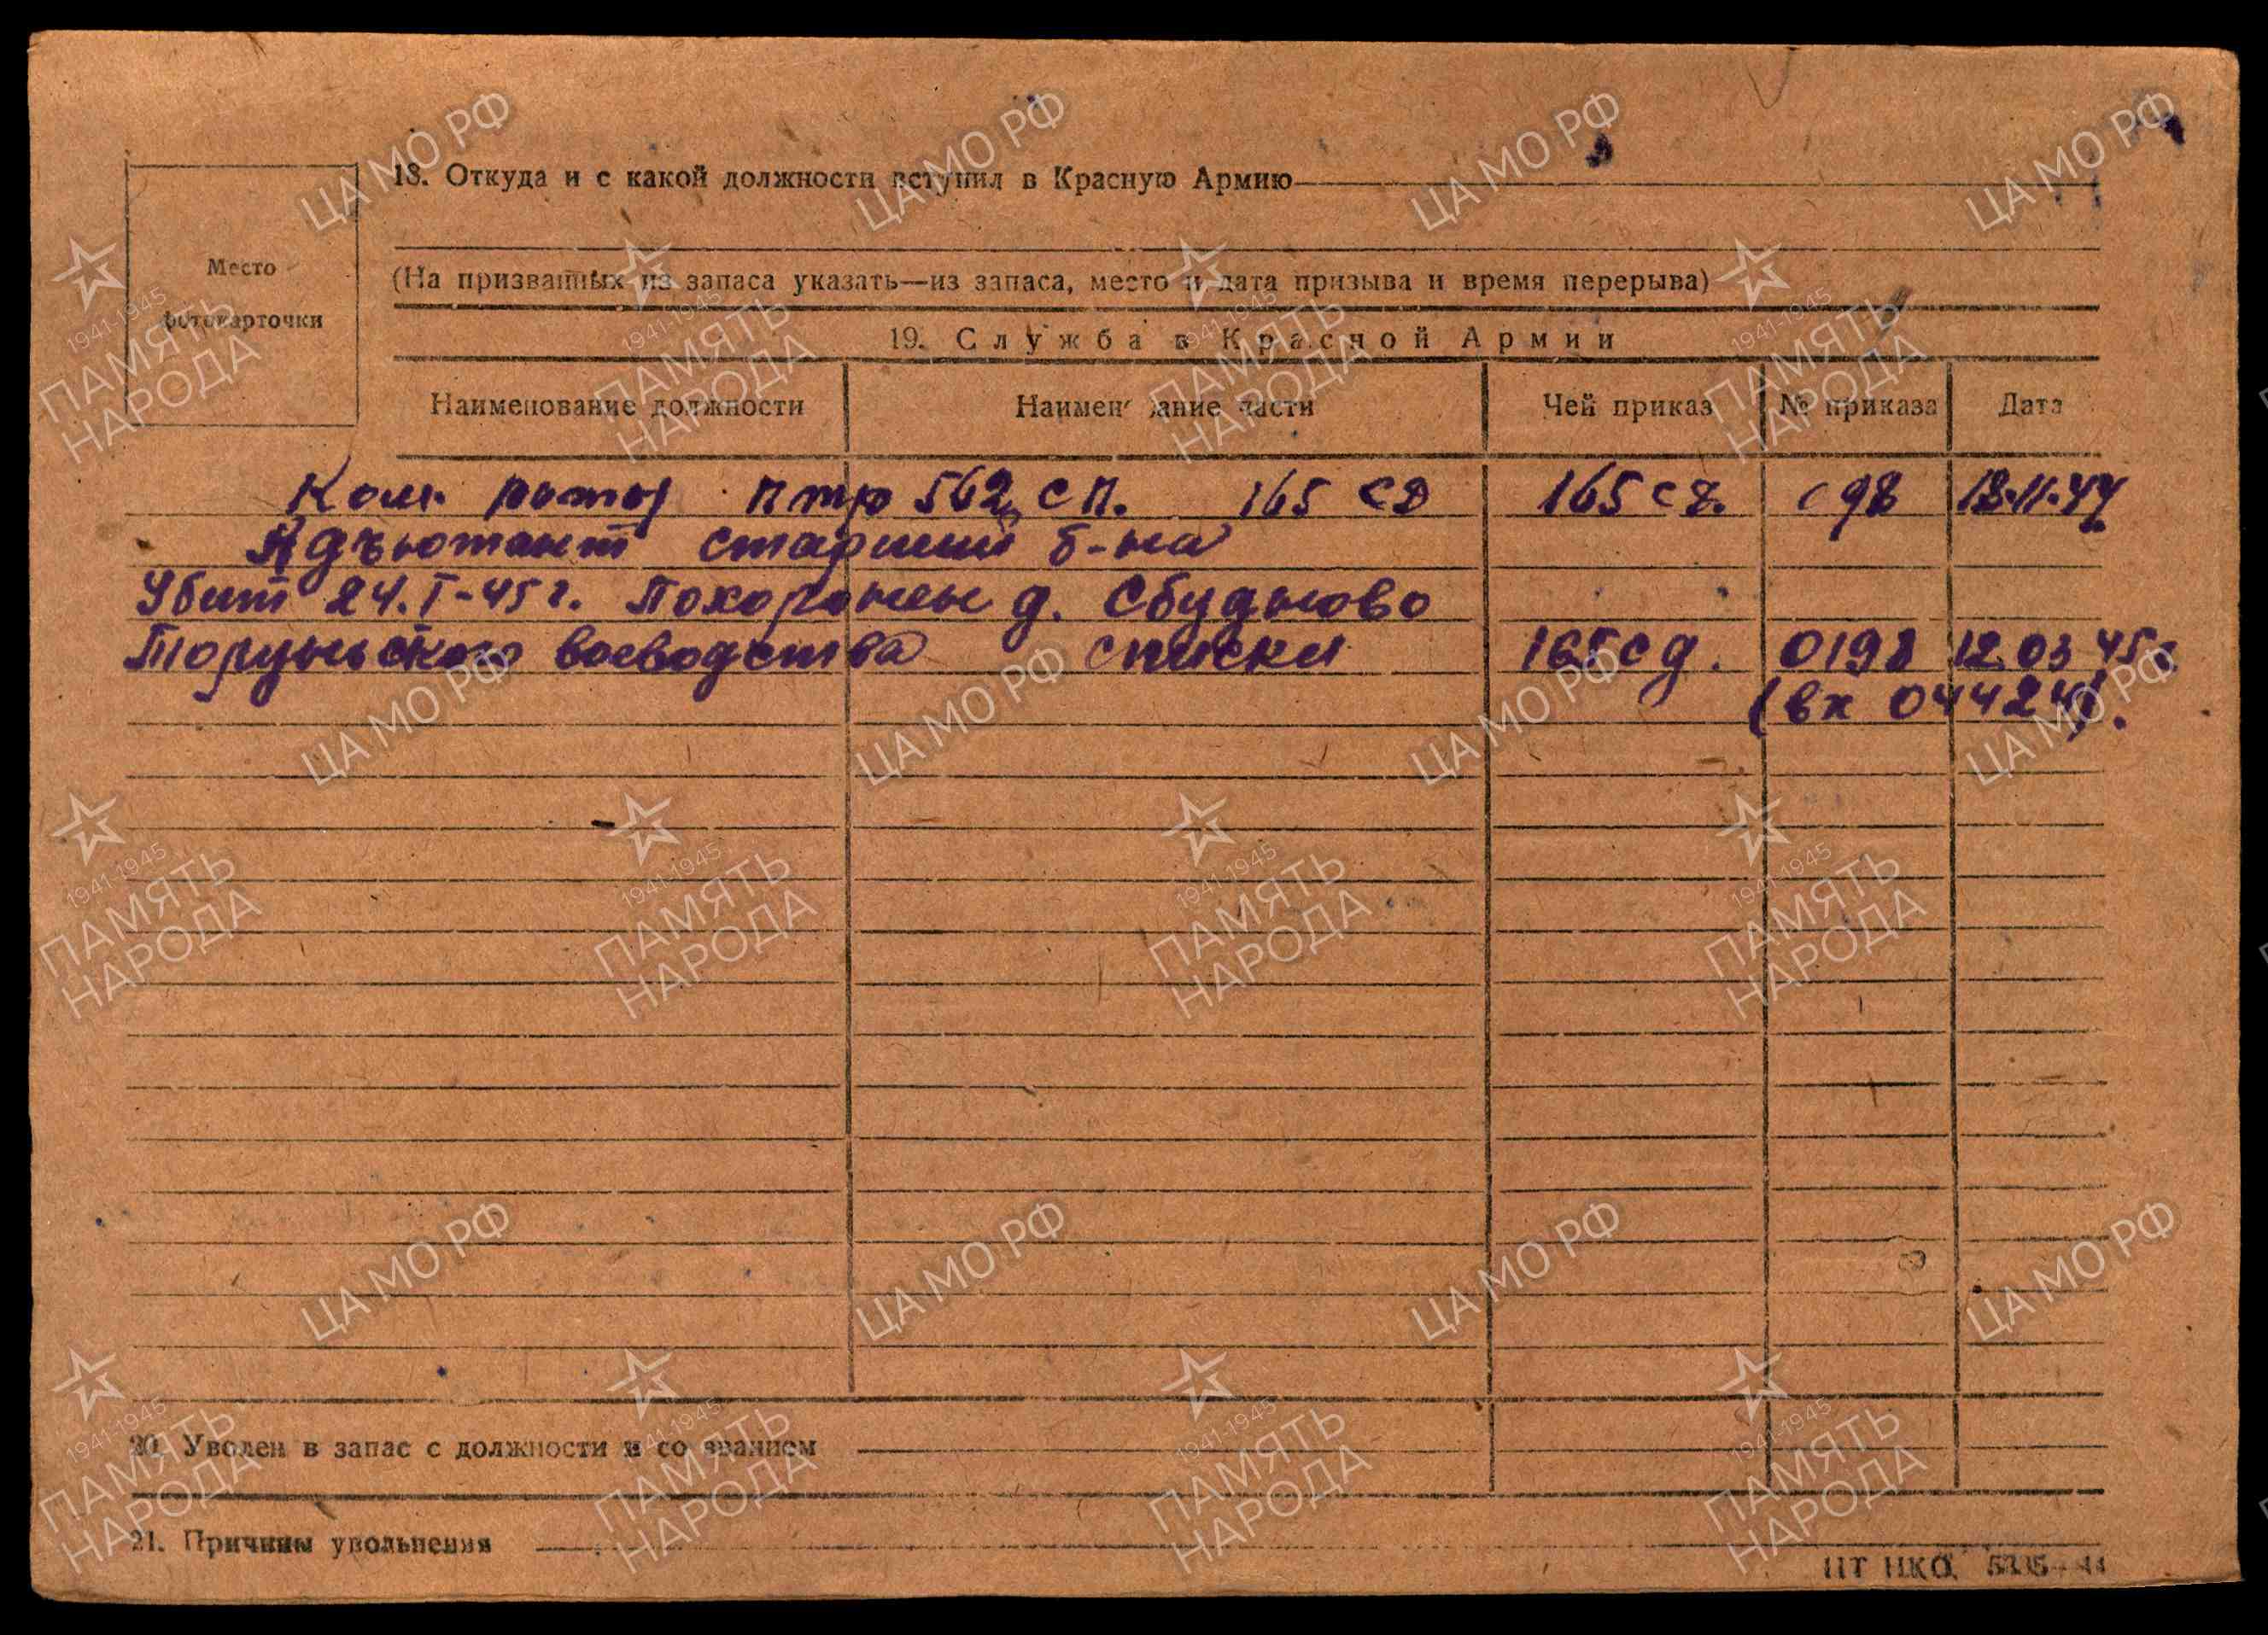 18. Откуда и с какой должности вступил в Красную Армию
(На призванных из запаса указать—из запаса, место и дата призыва и время перерыва)
Место
фотокарточки
19. Служба в Красной Армии
Наименование должности Наименование части Чей приказ № приказа Дата
Ком. роты птр 562 сп. 165 сд 165 сд. 98 13.11.44
Адъютант старший б-на
Убит 24.I-45г. Похоронен д. Сбудново
Торуньского воеводства списки 165 сд. 0198 12.03 45г
(вх 04424).
20. Уволен в запас с должности и со званием
21. Причины увольнения
ЦА МО РФ
1941-1945
ПАМЯТЬ
НАРОДА